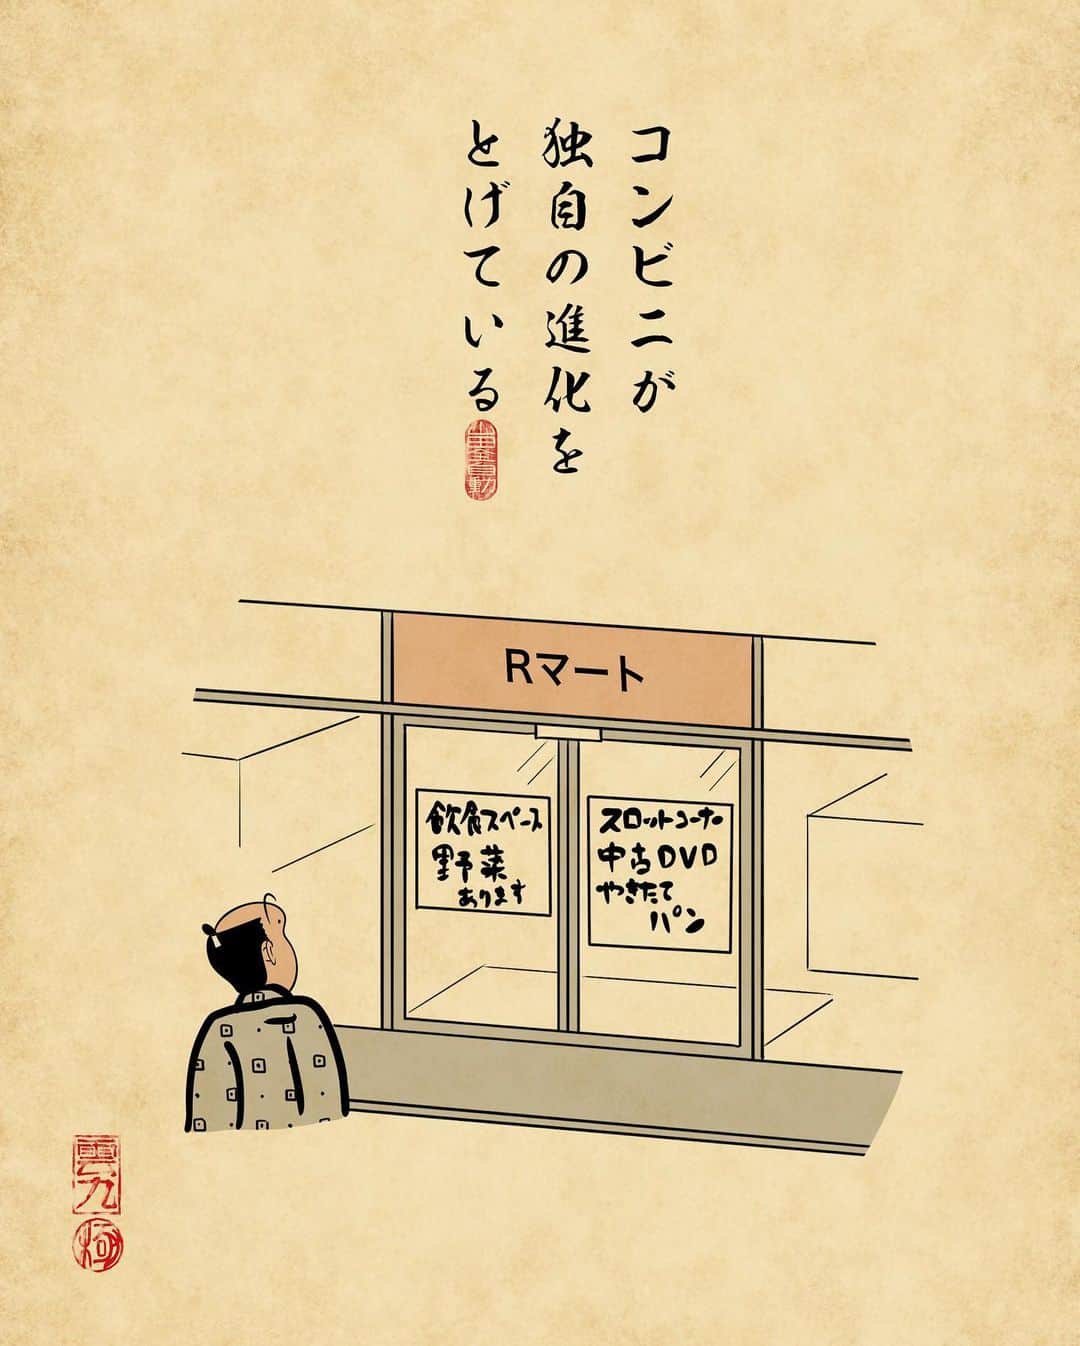 コンビニが
独自の進化を
とげている
Rマート
飲食スペース
野菜
あります
スロットコーナー
中古DVD
やきたて
パン